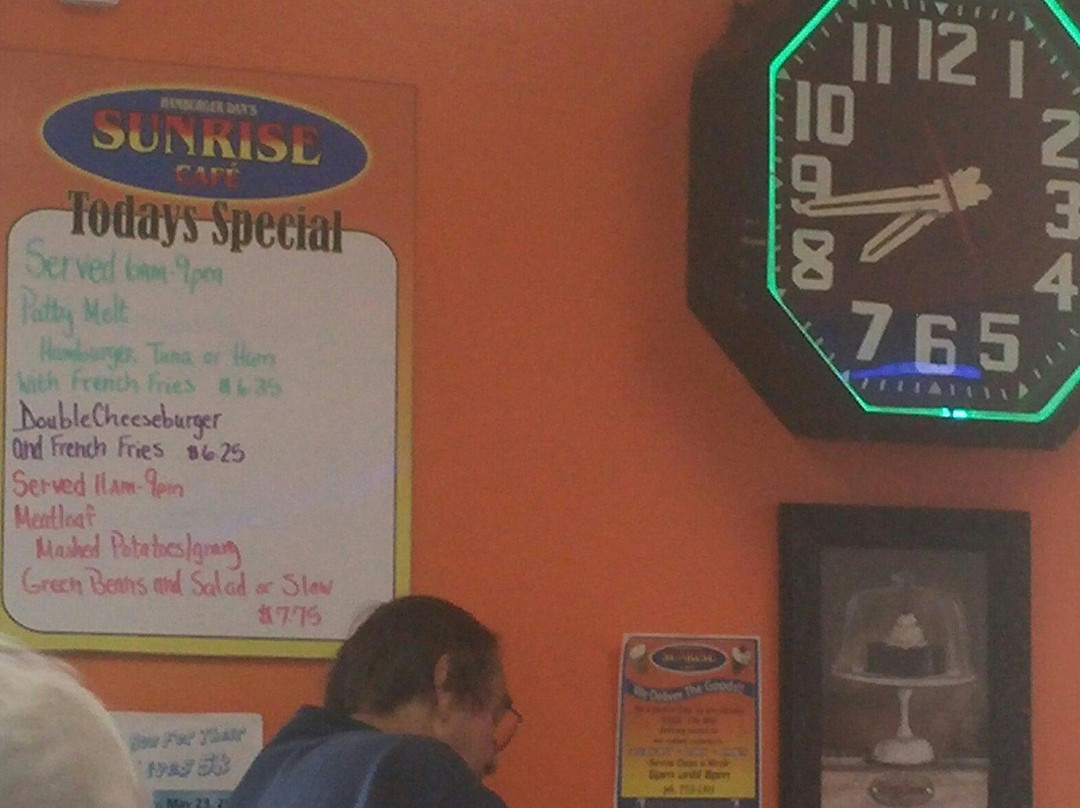 HAMBURGER DAN'S
SUNRISE
CAFÉ
Todays Special
Served 6am-9pm
Patty Melt
Hamburger, Tuna or Ham
With French Fries $6.35
Double Cheeseburger
and French Fries $6.25
Served 11am-9pm
Meatloaf
Mashed Potatoes/gravy
Green Beans and Salad or Slaw
$7.75
11 12 1
10 2
9 3
8 4
7 6 5
SUNRISE
We Deliver The Goods!!!
Seven Days a Week
6pm until 8pm
For Their
May 23, 2